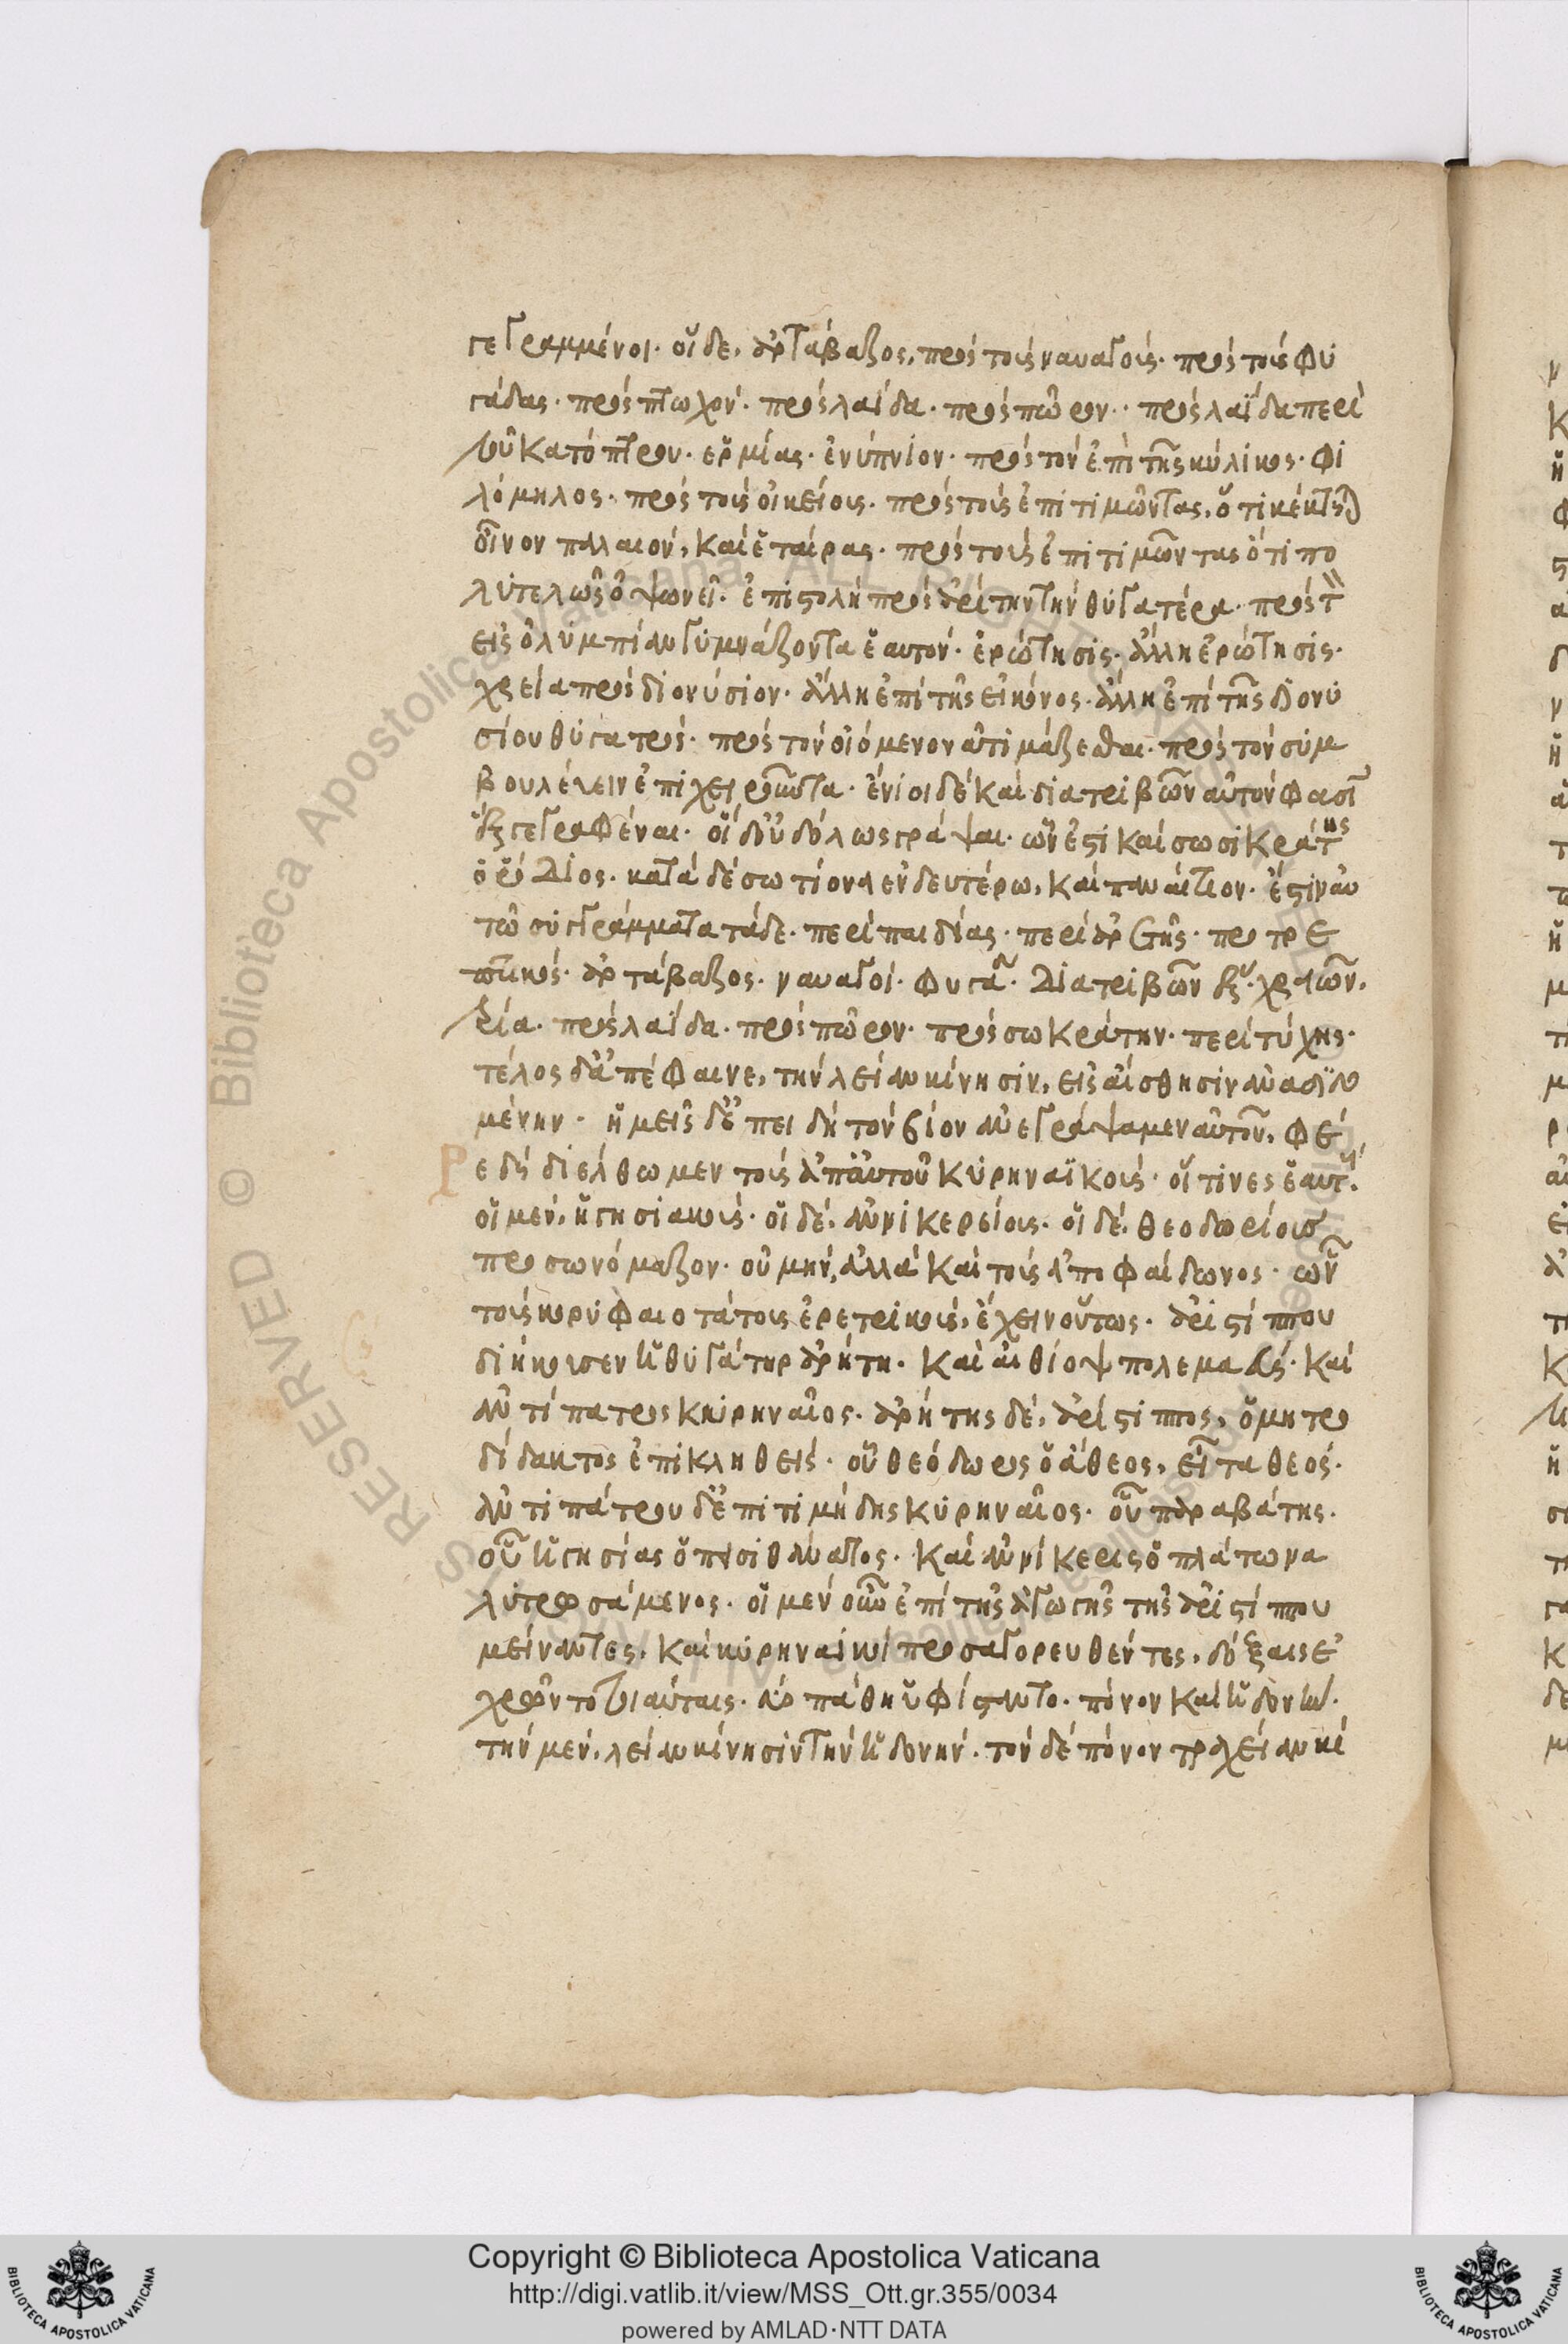 γεγραμμένοι· οἵδε, ἀρτάβαζος, πρὸς τοὺς ναυαγούς· πρὸς τοὺς φυ
γάδας· πρὸς πτωχόν· πρὸς λαΐδα· πρὸς πῶρον· πρὸς λαΐδα περὶ
τοῦ κατόπτρου· ἑρμίας· ἐνύπνιον· πρὸς τὸν ἐπὶ τῆς κύλικος· φι
λόμηλος· πρὸς τοὺς οἰκείους· πρὸς τοὺς ἐπιτιμῶντας, ὅτι κέκτηται
οἶνον παλαιὸν, καὶ ἑταίρας· πρὸς τοὺς ἐπιτιμῶντας ὅτι πο
λυτελῶς ὀψωνεῖ· ἐπιστολὴ πρὸς ἀρίτην τὴν θυγατέρα· πρὸς τὸν
εἰς ὀλυμπίαν γυμνάζοντα ἑαυτόν· ἐρώτησις· ἄλλη ἐρώτησις·
χρεία πρὸς διονύσιον· ἄλλη ἐπὶ τῆς εἰκόνος· ἄλλη ἐπὶ τῆς διονυ
σίου θυγατρός· πρὸς τὸν οἰόμενον ἀτιμάζεσθαι· πρὸς τὸν συμ
βουλεύειν ἐπιχειροῦντα· ἔνιοι δὲ καὶ διατριβῶν αὐτὸν φασὶν
ἓξ γεγραφέναι· οἱ δ' οὐδόλως γράψαι· ὧν ἐστὶ καὶ σωσικράτης
ὁ ῥόδιος· κατὰ δὲ σωτίονα ἐν δευτέρω, καὶ παναίτιον· ἔστιν αὐ
τῶ συγγράμματα τάδε· περὶ παιδίας· περὶ ἀρετῆς· προτρε
πτικός· ἀρτάβαζος· ναυαγοί· φυγά· διατριβῶν ἕξ· χρειῶν,
τρία· πρὸς λαΐδα· πρὸς πῶρον· πρὸς σωκράτην· περὶ τύχης·
τέλος δ' ἀπέφαινε, τὴν λείαν κίνησιν, εἰς αἴσθησιν ἀναδιδο
μένην· ἡμεῖς δ' ἐπειδὴ τὸν βίον ἀνεγράψαμεν αὐτοῦ, φέ
ρε δὴ διέλθωμεν τοὺς ἀπ' αὐτοῦ κυρηναϊκούς· οἵτινες ἑαυτ.
οἱ μὲν, ἡγησιακούς· οἱ δὲ, ἀννικερείους· οἱ δὲ, θεοδωρείους
προσωνόμαζον· οὐ μὴν, ἀλλὰ καὶ τοὺς ἀπὸ φαίδωνος· ὧν
τοὺς κορυφαιοτάτους ἐρετρικούς, ἔχειν οὕτως· ἀριστίππου
διήκουσεν ἡ θυγάτηρ ἀρήτη· καὶ αἰθίοψ πτολεμαεύς· καὶ
ἀντίπατρος κηρηναῖος· ἀρήτης δὲ, ἀρίστιππος, ὁ μητρο
δίδακτος ἐπικληθείς· οὗ θεόδωρος ὁ ἄθεος, εἶτα θεός·
ἀντιπάτρου δ' ἐπιτιμήδης κυρηναῖος· οὗ παραβάτης·
οὗ ἡγησίας ὁ πεισιθάνατος· καὶ ἀννίκερις ὁ πλάτωνα
λυτρωσάμενος· οἱ μὲν οὖν ἐπὶ τῆς ἀγωγῆς τῆς ἀριστίππου
μείναντες, καὶ κυρηναϊκοὶ προσαγορευθέντες, δόξαις ἐ
χρῶντο τοιαύταις· δύο πάθη ὑφίσταντο· πόνον καὶ ἡδονήν·
τὴν μὲν, λείαν κίνησιν τὴν ἡδονήν· τὸν δὲ πόνον τραχεῖαν κί
RESERVED © Biblioteca Apostolica Vaticana
ALL RIGHTS RESERVED
Copyright © Biblioteca Apostolica Vaticana
http://digi.vatlib.it/view/MSS_Ott.gr.355/0034
powered by AMLAD·NTT DATA
BIBLIOTECA APOSTOLICA VATICANA
BIBLIOTECA APOSTOLICA VATICANA